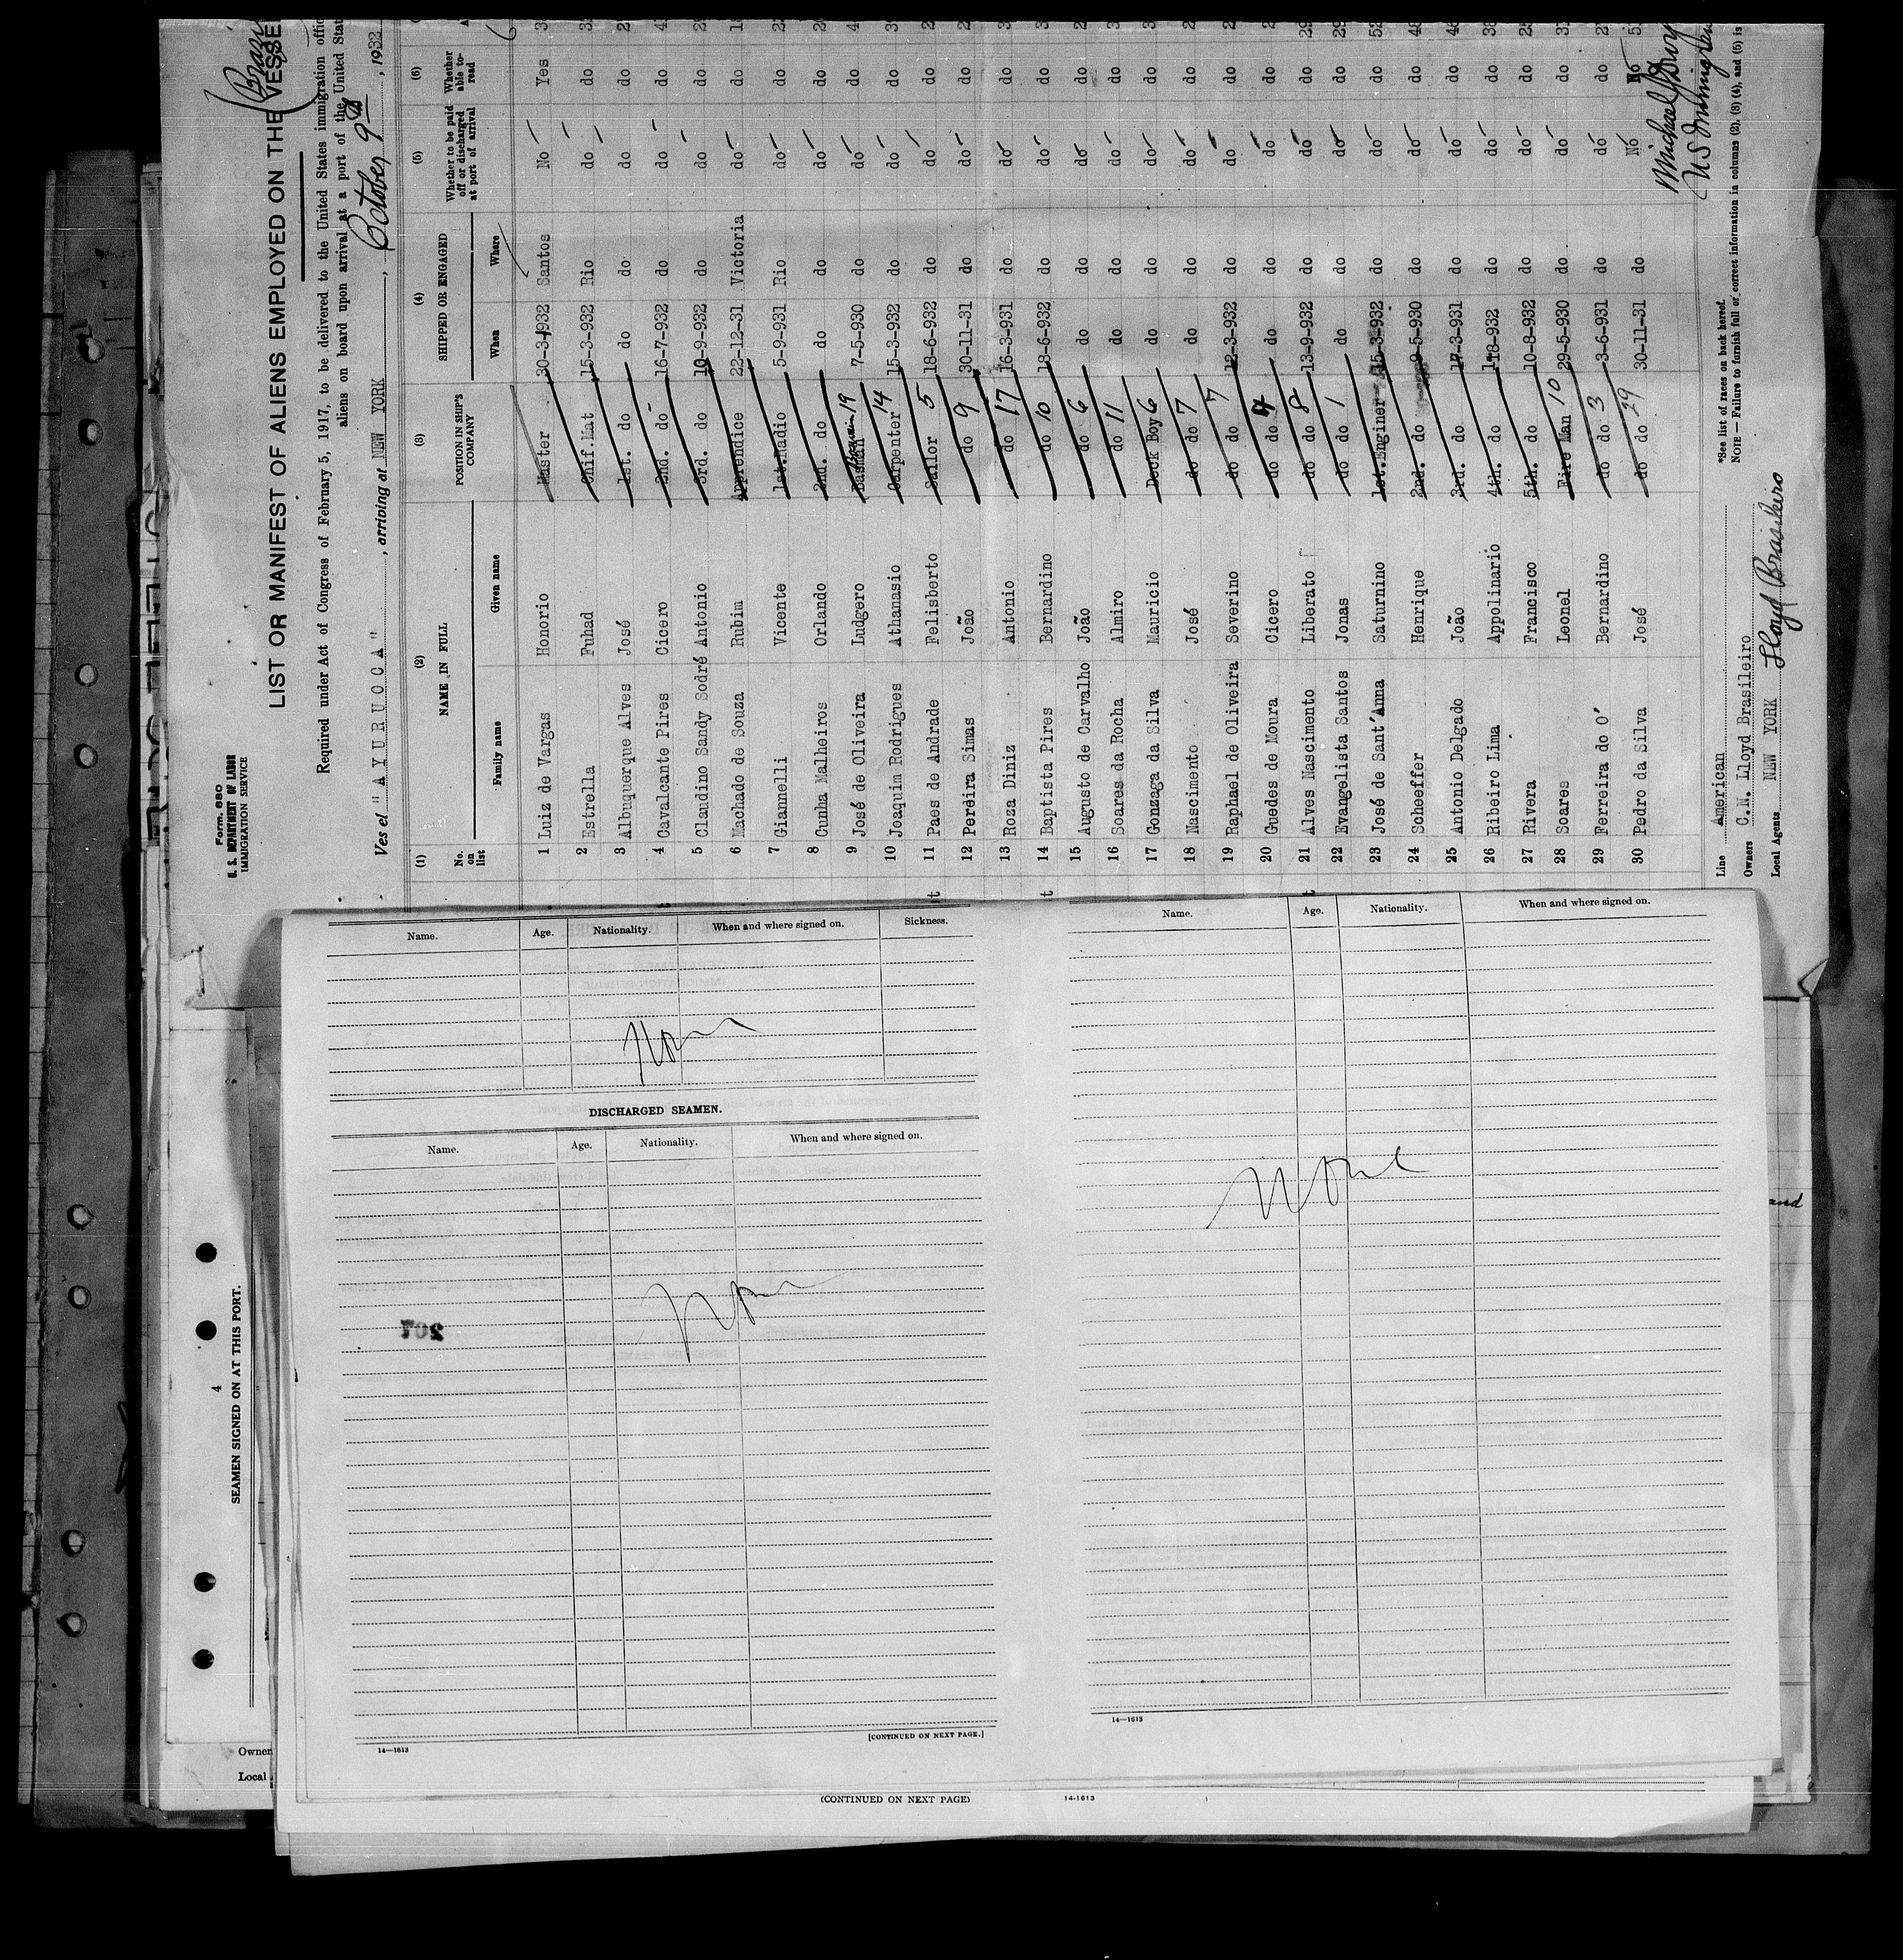 Form 680
U. S. DEPARTMENT OF LABOR
IMMIGRATION SERVICE
LIST OR MANIFEST OF ALIENS EMPLOYED ON THE VESSE
Required under Act of Congress of February 5, 1917, to be delivered to the United States immigration offic
aliens on board upon arrival at a port of the United Stat
Ves el " A Y U R U O C A " , arriving at NEW YORK , October 9th , 1932
(1) (2) (3) (4) (5) (6)
No. on list NAME IN FULL POSITION IN SHIP'S COMPANY SHIPPED OR ENGAGED Whether to be paid off or discharged at port of arrival Whether able to read
Family name Given name When Where
1 Luiz de Vargas Honorio Master 30-3-932 Santos No Yes
2 Estrella Fuhad Chif.Mat 15-3-932 Rio do do
3 Albuquerque Alves José 1st. do do do do do
4 Cavalcante Pires Cicero 2nd. do 16-7-932 do do do
5 Claudino Sandy Sodré Antonio 3rd. do 10-9-932 do do do
6 Machado de Souza Rubim Apprendice 22-12-31 Victoria do do
7 Giannelli Vicente 1st.Radio 5-9-931 Rio do do
8 Cunha Malheiros Orlando 2nd. do do do do do
9 José de Oliveira Ludgero 19 7-5-930 do do do
10 Joaquim Rodrigues Athanasio Carpenter 14 15-3-932 do do do
11 Paes de Andrade Felisberto Sailor 5 18-6-932 do do do
12 Pereira Simas João do 9 30-11-31 do do do
13 Roza Diniz Antonio do 17 16-3-931 do do do
14 Baptista Pires Bernardino do 10 18-6-932 do do do
15 Augusto de Carvalho João do 6 do do do do
16 Soares da Rocha Almiro do 11 do do do do
17 Gonzaga da Silva Mauricio Deck Boy 6 do do do do
18 Nascimento José do do 7 do do do do
19 Raphael de Oliveira Severino do do 7 12-3-932 do do do
20 Guedes de Moura Cicero do do 4 do do do do
21 Alves Nascimento Liberato do do 8 13-9-932 do do do
22 Evangelista Santos Jonas do do 1 do do do do
23 José de Sant'Anna Saturnino 1st.Enginer 15-3-932 do do do
24 Scheeffer Henrique 2nd. do 9-5-930 do do do
25 Antonio Delgado João 3rd. do 17-3-931 do do do
26 Ribeiro Lima Appolinario 4th. do 18-932 do do do
27 Rivera Francisco 5th. do 10-8-932 do do do
28 Soares Leonel Fire Man 10 29-5-930 do do do
29 Ferreira do O' Bernardino do do 3 3-6-931 do do do
30 Pedro da Silva José do do 29 30-11-31 do No No
Line American
Owners C.N. Lloyd Brasileiro
Local Agents NEW YORK Lloyd Brasileiro
*See list of races on back hereof.
NOTE — Failure to furnish full or correct information in columns (2), (3) (4), and (5) is
Name. Age. Nationality. When and where signed on. Sickness.
None
DISCHARGED SEAMEN.
Name. Age. Nationality. When and where signed on.
None
207
14—1613
[CONTINUED ON NEXT PAGE.]
Name. Age. Nationality. When and where signed on.
None
14—1613
(CONTINUED ON NEXT PAGE)
14-1613
4
SEAMEN SIGNED ON AT THIS PORT.
Owner
Local
and